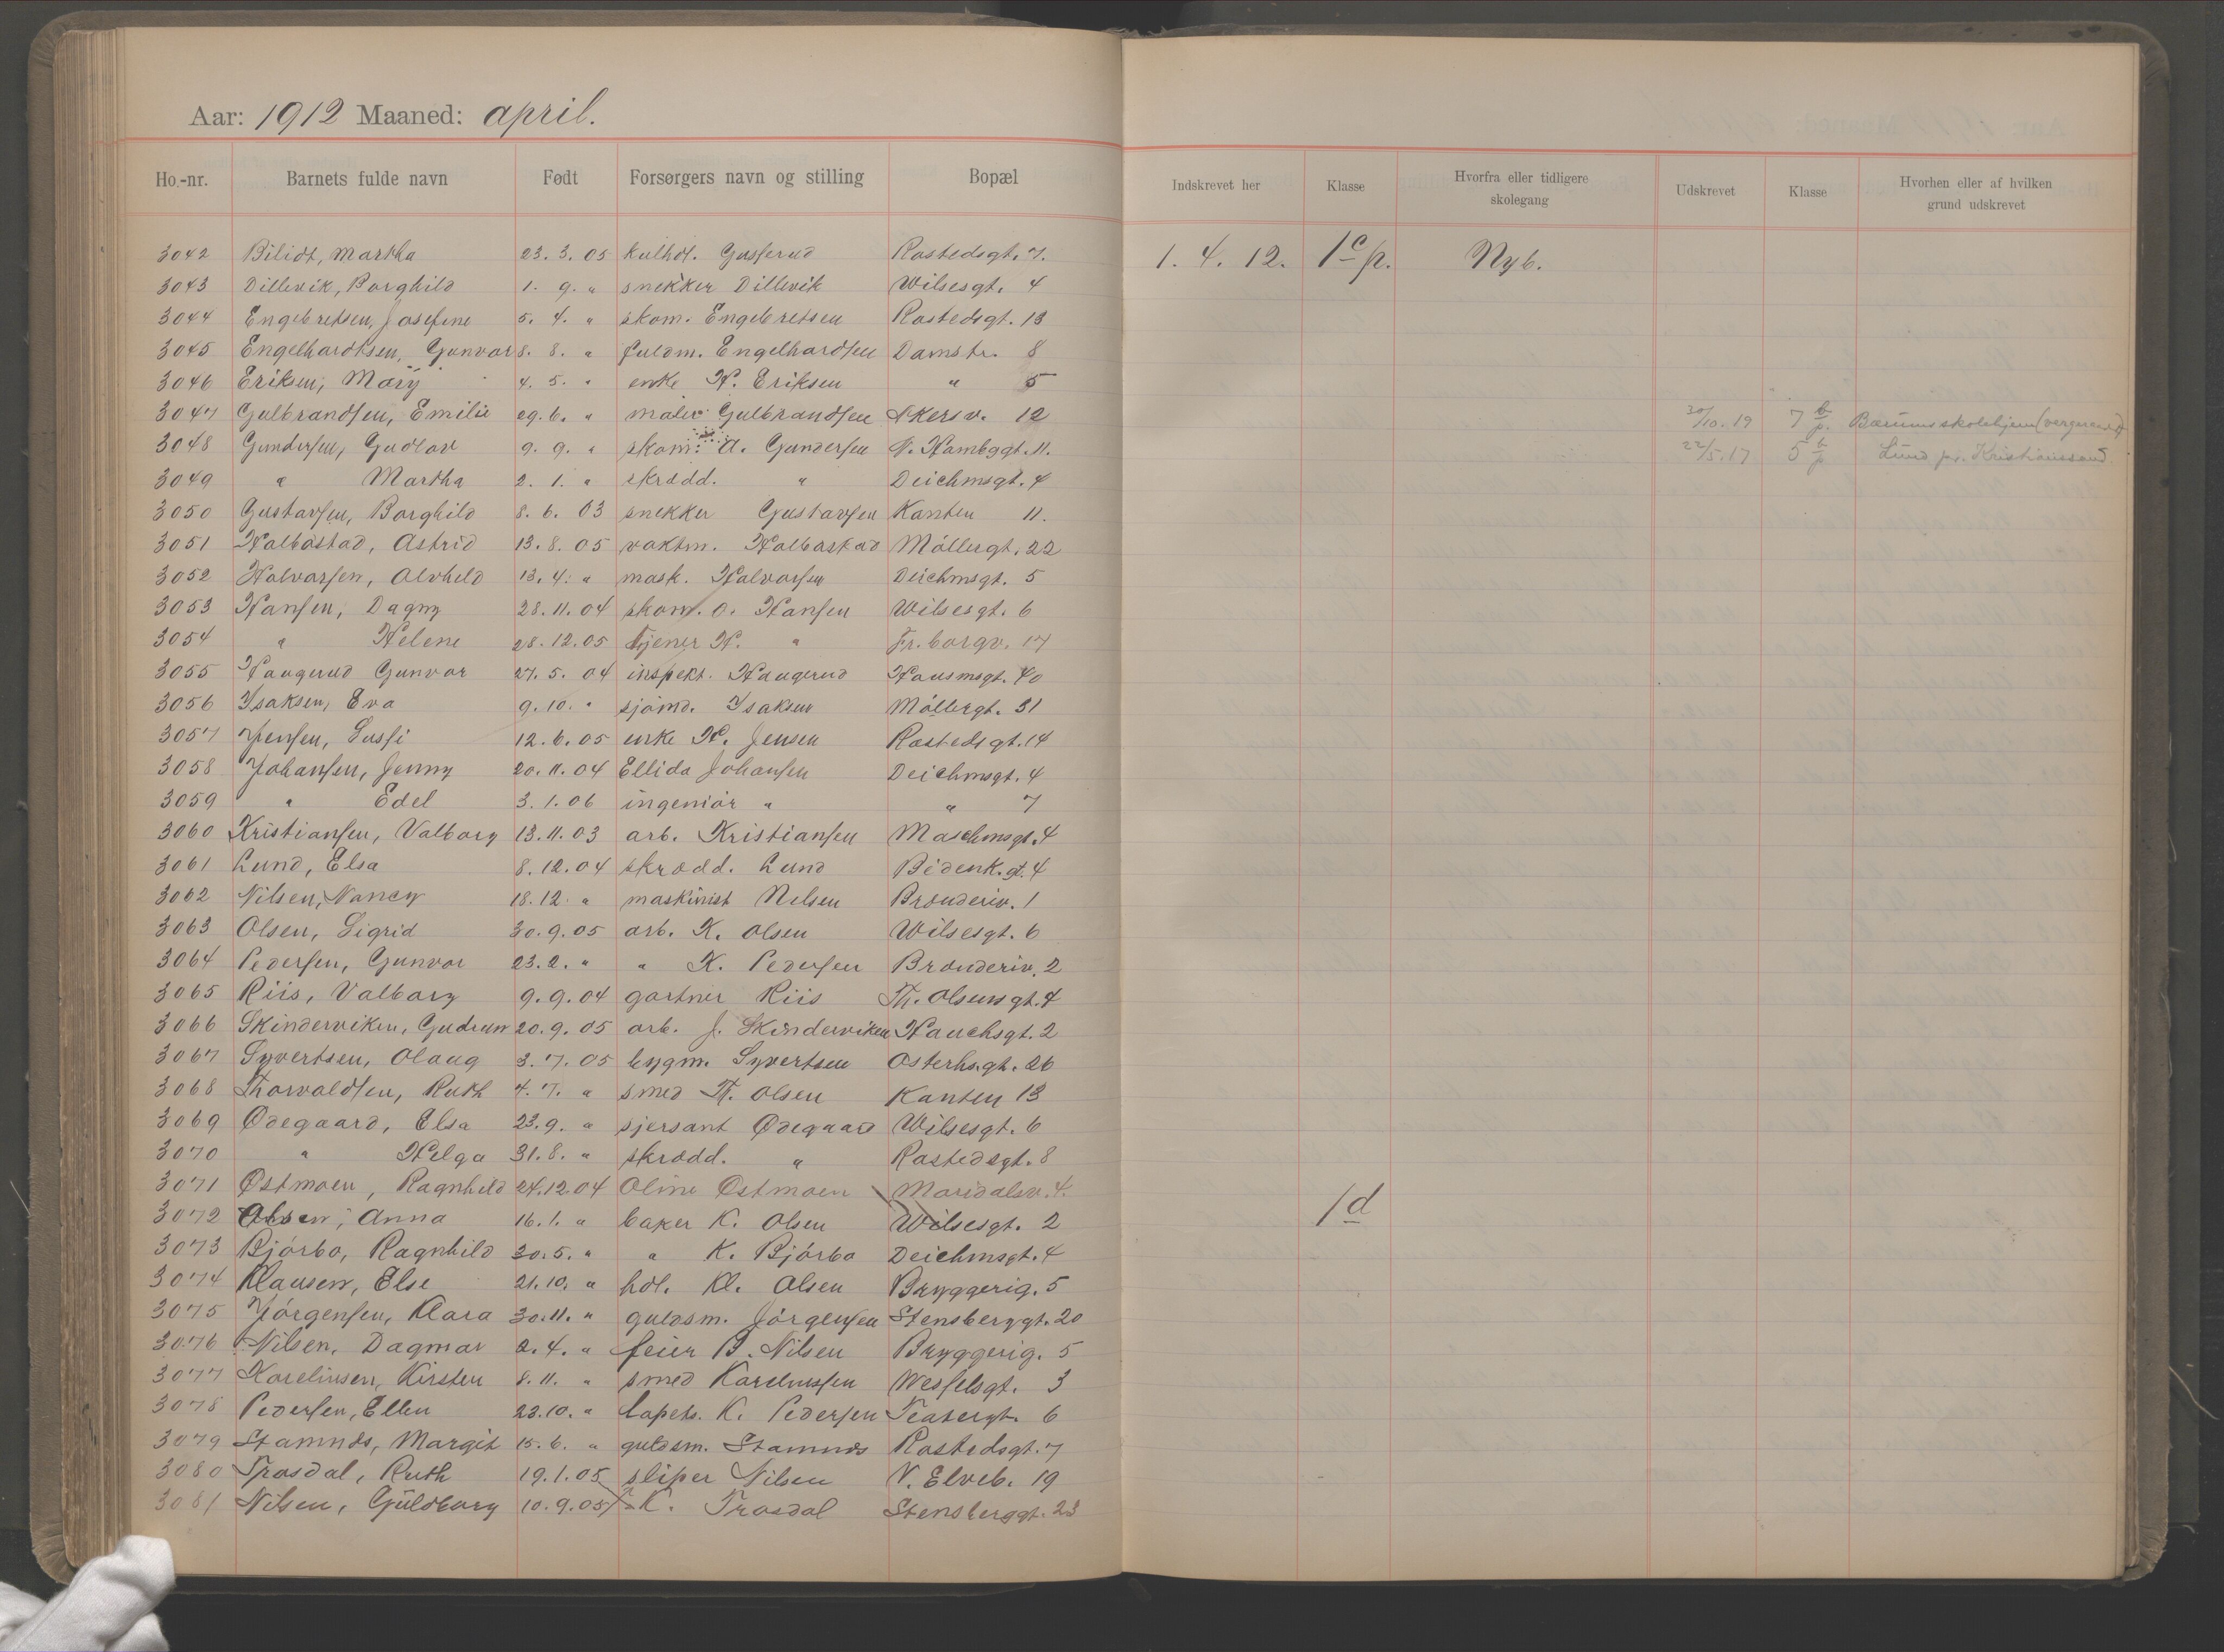 Aar: 1912 Maaned: april.
Ho.-nr. Barnets fulde navn Født Forsørgers navn og stilling Bopæl Indskrevet her Klasse Hvorfra eller tidligere skolegang Udskrevet Klasse Hvorhen eller af hvilken grund udskrevet
3042 Bilidt, Martha 23. 3. 05 kulhdl. Gusserud Rostedsgt. 7. 1. 4. 12. 1c p. Nyb.
3043 Dillevik, Borghild 1. 9. " snekker Dillevik Wilsesgt. 4
3044 Engebretsen, Josefine 5. 4. " skom. Engebretsen Rostedsgt. 13
3045 Engelhardtsen, Gunvor 8. 8. " fuldm. Engelhardtsen Damstr. 8
3046 Eriksen, Mary 4. 5. " enke H. Eriksen " 5
3047 Gulbrandsen, Emilie 29. 6. " maler Gulbrandsen Akersv. 12 30/10. 19 7 b p. Bærums skolehjem
3048 Gundersen, Gudlov 9. 9. " skom. A. Gundersen N. Hambggt. 11. 22/5. 17 5 b p Lund pr. Kristianssand
3049 " Martha 2. 1. " skrædd. " Deichmsgt. 4
3050 Gustavsen, Borghild 8. 6. 03 snekker Gustavsen Kanten 11.
3051 Halbostad, Astrid 13. 8. 05 vaktm. Halbostad Möllergt. 22
3052 Halvorsen, Alvhild 13. 4. " mask. Halvorsen Deichmsgt. 5
3053 Hansen, Dagny 28. 11. 04 skom. O. Hansen Wilsesgt. 6
3054 " Helene 28. 12. 05 tjener H. " Fr.borgv. 17
3055 Haugerud Gunvor 27. 5. 04 inspekt. Haugerud Hausmsgt. 40
3056 Isaksen, Eva 9. 10. " sjömd. Isaksen Möllergt. 31
3057 Jensen, Sussi 12. 6. 05 enke H. Jensen Rostedsgt. 14
3058 Johansen, Jenny 20. 11. 04 Ellida Johansen Deichmsgt. 4
3059 " Edel 3. 1. 06 ingeniör " " 7
3060 Kristiansen, Valborg 13. 11. 03 arb. Kristiansen Maschmsgt. 4
3061 Lund, Elsa 8. 12. 04 skrædd. Lund Bidenk.gt. 4
3062 Nilsen, Nancy 18. 12. " maskinist Nilsen Brænderiv. 1
3063 Olsen, Sigrid 30. 9. 05 arb. K. Olsen Wilsesgt. 6
3064 Pedersen, Gunvor 23. 2. " " K. Pedersen Brænderiv. 2
3065 Riis, Valborg 9. 9. 04 gartner Riis Th. Olsensgt. 4
3066 Skinderviken, Gudrun 20. 9. 05 arb. J. Skinderviken Hauchsgt. 2
3067 Syvertsen, Olaug 3. 7. 05 bygm. Syvertsen Osterhs.gt. 26
3068 Thorvaldsen, Ruth 4. 7. " smed Th. Olsen Kanten 13
3069 Ödegaard, Elsa 23. 9. " sjersant Ödegaard Wilsesgt. 6
3070 " Helga 31. 8. " skrædd. " Rostedsgt. 8
3071 Östmoen, Ragnhild 24. 12 04 Oline Östmoen Maridalsv. 4.
3072 Olsen, Anna 16. 1. " baker K. Olsen Wilsesgt. 2 1d
3073 Bjórbo, Ragnhild 30. 5. " " K. Bjórbo Deichmsgt. 4
3074 Klausen, Else 21. 10. " hdl. Kl. Olsen Bryggerig. 5
3075 Jörgensen, Klara 30. 11. " guldsm. Jörgensen Stensberggt. 20
3076 Nilsen, Dagmar 2. 4. " feier B. Nilsen Bryggerig. 5
3077 Karelinsen, Kirsten 8. 11. " smed Karelinsen Wesselsgt. 3
3078 Pedersen, Ellen 23. 10. " tapets. K. Pedersen Teatergt. 6
3079 Stamnes, Margit 15. 6. " guldsm. Stamnes Rostedsgt. 7
3080 Trosdal, Ruth 19. 1. 05 sliper Nilsen N. Elveb. 19
3081 Nilsen, Güldborg 10. 9. 05 K. Trosdal Stensberggt. 23